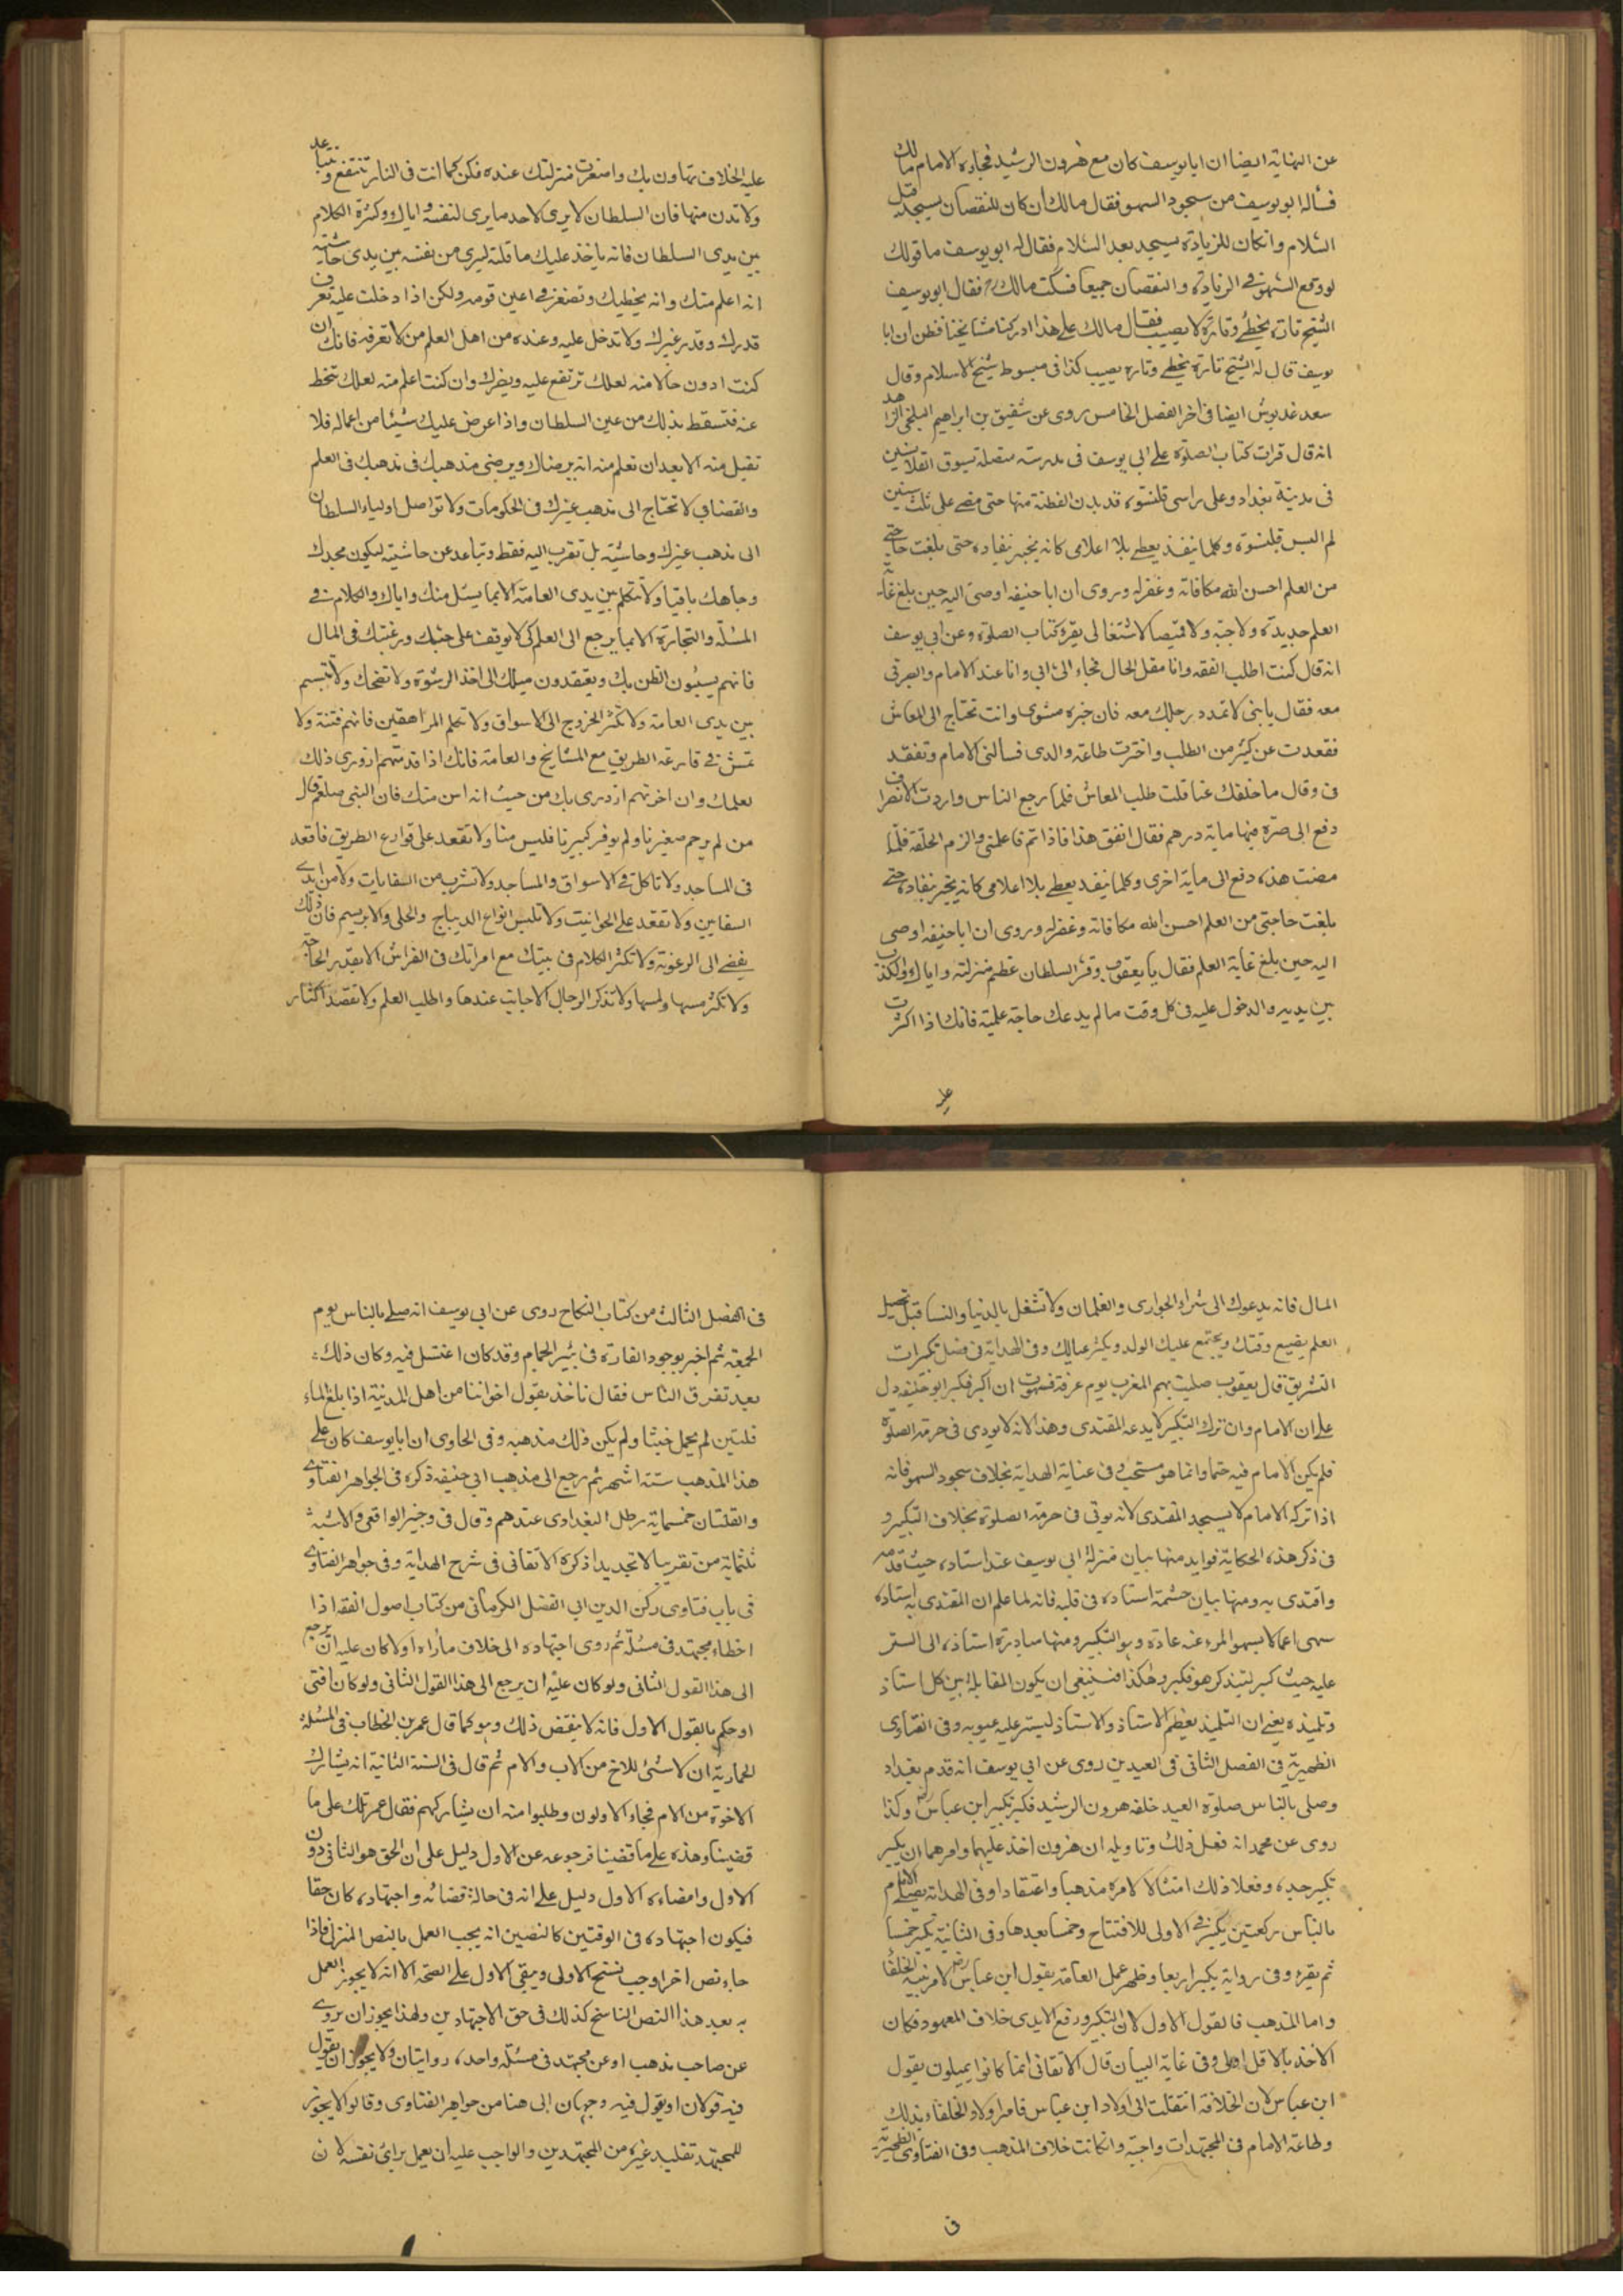 عن النهاية ايضا ان ابا يوسف كان مع هرون الرشيد فجاءه الامام مالك
فسأله ابو يوسف من سجود السهو فقال مالك ان كان للنقصان يسجد قبل
السلام وانكان للزيادة يسجد بعد السلام فقال له ابو يوسف ما قولك
لو وقع السهو في الزيادة والنقصان جميعا فسكت مالك فقال ابو يوسف
الشيخ تارة يخطئ وتارة لا يصيب فقال مالك على هذا ادركنا مشايخنا فظن ان ابا
يوسف قال له الشيخ تارة يخطئ وتاره يصيب كذا فى مبسوط شيخ الاسلام وقال
سعد غدبوش ايضا فى اخر الفصل الخامس روى عن شقيق بن ابراهيم البلخى الزاهد
انه قال قرات كتاب الصلوة على ابى يوسف فى مدرسته متصلة بسوق القلانسين
فى مدينة بغداد وعلى راسى قلنسوة قد بدن القطنة منها حتى مضى على ثلث سنين
لم البس قلنسوة وكلما ينفذ يعطى بلا اعلامى كانه يخبر بنفاده حتى بلغت حاجتى
من العلم احسن الله مكافاته وغفر له وروى ان ابا حنيفه اوصى اليه حين بلغ غاية
العلم جديدة ولا جبة ولا قميصا لاشتغالى بقرءة كتاب الصلوة وعن ابى يوسف
انه قال كنت اطلب الفقه وانا مقل الحال فجاء الى ابى وانا عند الامام
معه فقال يا بنى لا تمدد رجلك معه فان خبزه مشوى وانت تحتاج الى المعاش
فقعدت عن كثير من الطلب واخترت طاعة والدى فسالنى الامام وتفقد
فى وقال ما خلفك عنا قلت طلب المعاش فلما رجع الناس واردت الانصراف
دفع الى صرة فيها ماية درهم فقال انفق هذا فاذا تم فاعلمنى والزم الحلقة فلما
مضت هذه دفع الى ماية اخرى وكلما ينفد يعطى بلا اعلامى كانه يخبر بنفاده حتى
بلغت حاجتى من العلم احسن الله مكافاته وغفر له وروى ان ابا حنيفه اوصى
اليه حين بلغ غاية العلم فقال يا يعقوب وقر السلطان عظم منزلته واياك والكذب
بين يديه والدخول عليه فى كل وقت ما لم يدعك حاجة علمية فانك اذا اكثرت
عليه
عليه الخلاف تهاون بك واصغرت منزلتك عنده فكن كما انت فى النار تنتفع وتتباعد
ولا تدن منها فان السلطان لا يرى لاحد ما يرى لنفسه واياك وكثرة الكلام
بين يدى السلطان فانه ياخذ عليك ما قلته ليرى من نفسه بين يدى حاشيته
انه اعلم منك وانه يخطيك وتصغر فى اعين قومه ولكن اذا دخلت عليه تعرف
قدرك وقدر غيرك ولا تدخل عليه وعنده من اهل العلم من لا تعرفه فانك ان
كنت ادون حالا منه لعلك ترتفع عليه ويضرك وان كنت اعلم منه لعلك تنحط
عنه فتسقط بذلك من عين السلطان واذا عرض عليك شيئا من اعماله فلا
تقبل منه الا بعد ان تعلم منه انه يرضاك ويرضى مذهبك فى مذهبك فى العلم
والقضا كى لا تحتاج الى مذهب غيرك فى الحكومات ولا تواصل اولياء السلطان
الى مذهب غيرك وحاشيته بل تقرب اليه فقط وتباعد عن حاشيته ليكون مجدك
وجاهك باقيا ولا تتكلم بين يدى العامة الا بما يسئل منك واياك والكلام فى
المسئلة والتجارة الا بما يرجع الى العلم كى لا يوقف على حبك ورغبتك فى المال
فانهم يسيئون الظن بك ويعتقدون ميلك الى اخذ الرشوة ولا تضحك ولا تتبسم
بين يدى العامة ولا تكثر الخروج الى الاسواق ولا تكلم المراهقين فانهم فتنة ولا
تمش فى قارعة الطريق مع المشايخ والعامة فانك اذا قدمتهم ازورى ذلك
بعلمك وان اخرتهم ازدرى بك من حيث انه اسن منك فان النبى صلعم قال
من لم يرحم صغيرنا ولم يوقر كبيرنا فليس منا ولا تقعد على قوارع الطريق فاقعد
فى المساجد ولا تاكل فى الاسواق والمساجد ولا تشرب من السقايات ولا من ايدى
السقايين ولا تقعد على الحوانيت ولا تلبس انواع الديباج والحلى والابريسم فان ذلك
يفضى الى الرعونة ولا تكثر الكلام فى بيتك مع امراتك فى الفراش الا بقدر الحاجة
ولا تكثر مسها ولمسها ولا تذكر الرجال الاجانب عندها واطلب العلم ولا تقصد اكثار
المال فانه يدعوك الى شراء الجوارى والغلمان ولا تشغل بالدنيا والنسا قبل تحصيل
العلم يضيع وقتك ويجتمع عليك الولد ويكثر عيالك وفى الهداية فى فصل تكبيرات
التشريق قال يعقوب صليت بهم المغرب يوم عرفة فسهوت ان اكبر فكبر ابو حنيفه دل
على ان الامام وان ترك التكبير لا يدعه المقتدى وهذا لانه لا يودى فى حرمة الصلوة
فلم يكن الامام فيه حتما وانما هو مستحب وفى عناية الهداية بخلاف سجود السهو فانه
اذا تركه الامام لا يسجد المقتدى لانه يوتى فى حرمة الصلوة بخلاف التكبير و
فى ذكر هذه الحكاية فوايد منها بيان منزلة ابى يوسف عند استاده حيث قدمه
واقتدى به ومنها بيان حشمة استاده فى قلبه فانه لما علم ان المقتدى به استاده
سهى عما لا يسهوا المرء عنه عادة وهو التكبير ومنها مبادرة استاذه الى الستر
عليه حيث كبر ليتذكر هو فكبر وهكذا فينبغى ان يكون المقابلة بين كل استاذ
وتلميذه يعنى ان التلميذ يعظم الاستاذ والاستاذ ليستر عليه عيوبه وفى الفتاوى
الظهيرية فى الفصل الثانى فى العيدين روى عن ابى يوسف انه قدم بغداد
وصلى بالناس صلوة العيد خلفه هرون الرشيد فكبر تكبير ابن عباس رضه وكذا
روى عن محمد انه فعل ذلك وتاويله ان هرون اخذ عليهما وامرهما ان يكبر
تكبير جده وفعلا ذلك امتثالا لامره مذهبا واعتقادا وفى الهداية يصلى الامام
بالناس ركعتين يكبر فى الاولى للافتتاح وخمسا بعدها وفى الثانية يكبر خمسا
ثم يقرء وفى رواية يكبر اربعا وظهر عمل العامة بقول ابن عباس رضه لامر بنيه الخلفا
واما المذهب فالقول الاول لان التكبير ورفع الايدى خلاف المعهود فكان
الاخذ بالاقل اولى وفى غاية البيان قال الاتقانى انما كانوا يميلون بقول
ابن عباس لان الخلافة انتقلت الى اولاد ابن عباس فامر اولاد الخلفاء بذلك
وطاعة الامام فى المجتهدات واجبة وانكانت خلاف المذهب وفى الفتاوى الظهيرية
فى
فى الفصل الثالث من كتاب النكاح روى عن ابى يوسف انه صلى بالناس يوم
الجمعة ثم اخبر بوجود الفارة فى بئير الحمام وقد كان اغتسل فيه وكان ذلك
بعد تفرق الناس فقال ناخذ بقول اخواننا من اهل المدينة اذا بلغ الماء
قلتين لم يحمل خبثا ولم يكن ذلك مذهبه وفى الحاوى ان ابا يوسف كان على
هذا المذهب ستة اشهر ثم رجع الى مذهب ابى حنيفه ذكره فى الجواهر الفتاوى
والقلتان خمسماية رطل البغدادى عندهم وقال فى وجيز الواقعى والاشبه
ثلثماية من تقريبا لا تجديدا ذكره الاتقانى فى شرح الهداية وفى جواهر الفتاوى
فى باب فتاوى ركن الدين ابى الفضل الكرمانى من كتاب اصول الفقه اذا
اخطاء مجتهد فى مسئلة ثم روى اجتهاده الى خلاف ما راه اولا كان عليه ان يرجع
الى هذا القول الثانى ولو كان عليه ان يرجع الى هذا القول الثانى ولو كان افتى
او حكم بالقول الاول فانه لا ينقض ذلك وهو كما قال عمر بن الخطاب فى المسئلة
الحمارية ان لا شئ للاخ من الاب والام ثم قال فى السنة الثانية انه يشارك
الاخوة من الام فجاء الاولون وطلبوا منه ان يشاركهم فقال عمر تلك على ما
قضينا وهذه على ما قضينا فرجوعه عن الاول دليل على ان الحق هو الثانى دون
الاول وامضاءه الاول دليل على انه فى حالة قضائه واجتهاده كان حقا
فيكون اجتهاده فى الوقتين كالنصين انه يجب العمل بالنص المنزل فاذا
جاء نص اخر اوجب نسخ الاولى ويبقى الاول على الصحة الا انه لا يجوز العمل
به بعد هذا النص الناسخ كذلك فى حق الاجتهادين ولهذا يجوز ان يروى
عن صاحب مذهب او عن مجتهد فى مسئلة واحده روايتان ولا يجوز ان يقول
فيه قولان او يقول فيه وجهان الى هنا من جواهر الفتاوى وقالوا لا يجوز
للمجتهد تقليد غيره من المجتهدين والواجب عليه ان يعمل براى نفسه لان